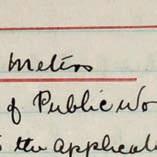 Meters
of Public Wo
the applicat